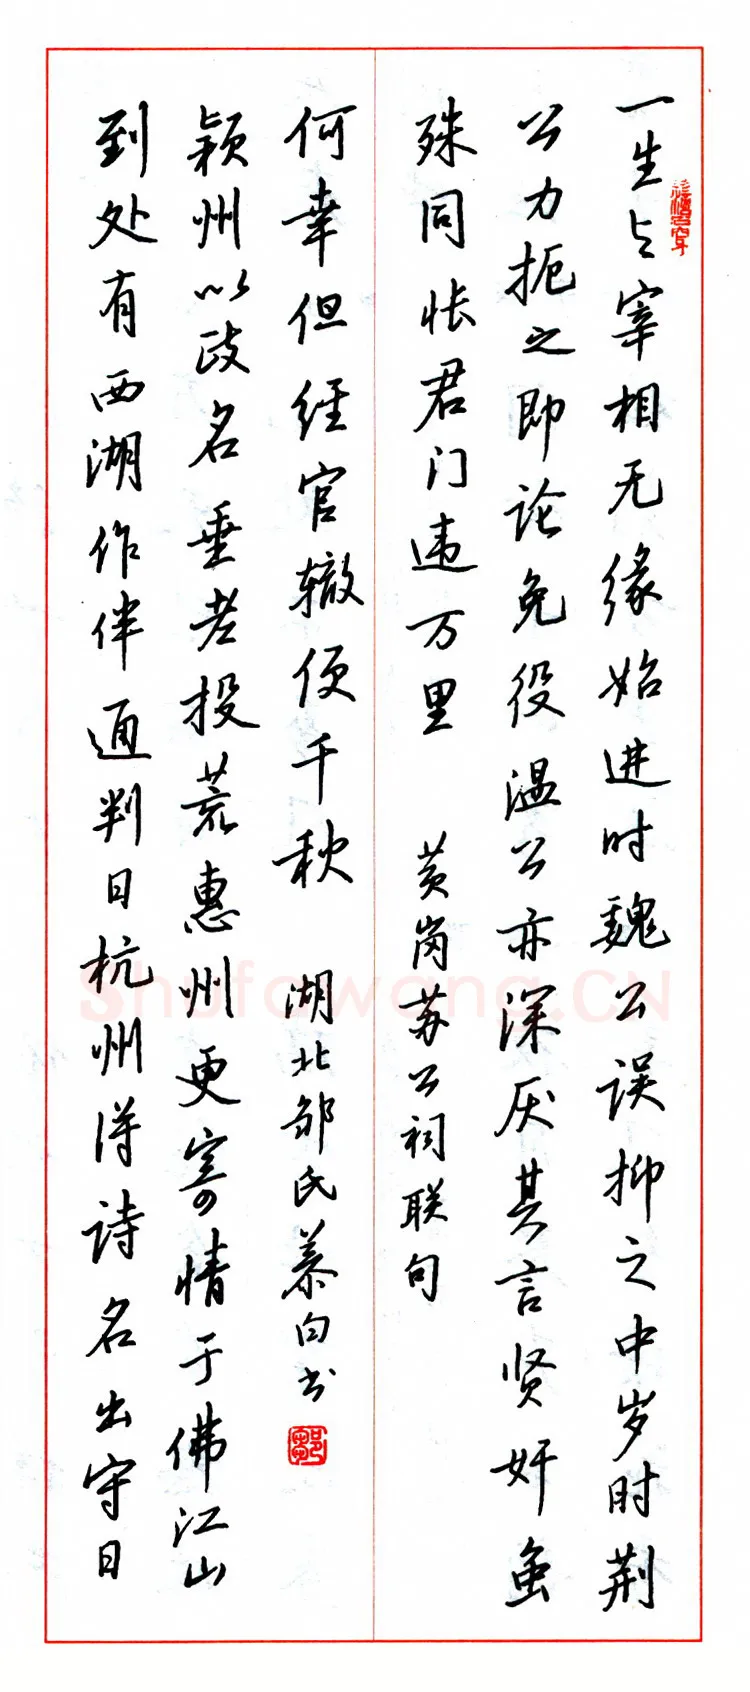 一生与宰相无缘始进时魏公误抑之中岁时荆
公力扼之即论免役温公亦深厌其言贤奸虽
殊同怅君门违万里 黄岗苏公祠联句
到处有西湖作伴通判日杭州得诗名出守日
颍州以政名垂老投荒惠州更寄情于佛江山
何幸但经官辙便千秋 湖北邹氏慕白书
鄒
Shufawang.CN